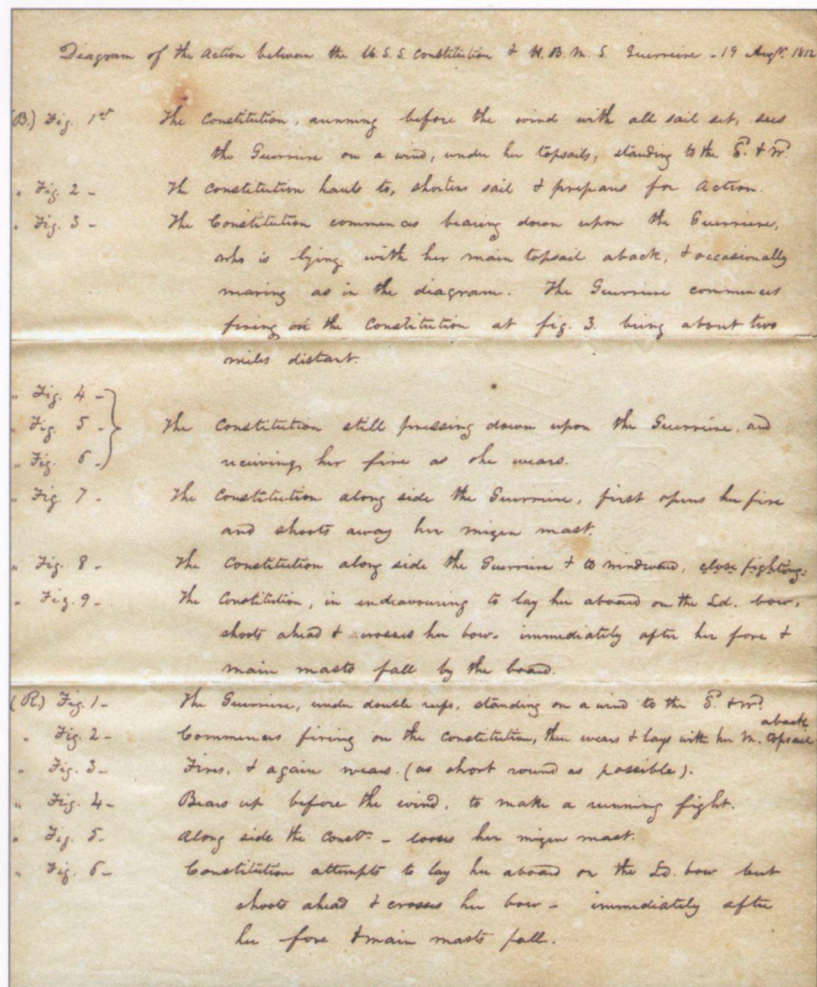 Diagram of the Action between the U.S.S Constitution & H.B.M S. Guerriere - 19 Augt. 1812
(B.) Fig. 1st The Constitution, running before the wind with all sail set, sees
the Guerriere on a wind, under her topsails, standing to the S. & W.
" Fig 2 - The Constitution hauls to, shortens sail & prepares for Action.
" Fig. 3 - The Constitution commences bearing down upon the Guerriere,
who is lying with her main topsail aback, & occasionally
wearing as in the diagram. The Guerriere commences
firing on the Constitution at fig. 3. being about two
miles distant.
" Fig. 4 -
" Fig. 5 - The Constitution still pressing down upon the Guerriere, and
" Fig. 6 - receiving her fire as she wears.
" Fig. 7 - The Constitution along side the Guerriere, first opens her fire
and shoots away her mizen mast.
" Fig. 8 - The Constitution along side the Guerriere & to windward, close fighting.
" Fig. 9 - The Constitution, in endeavouring to lay her aboard on the Ld. bow,
shoots ahead & crosses her bow. immediately after her fore &
main masts fall by the board.
(R.) Fig. 1 - The Guerriere, under double reefs, standing on a wind to the S. & W.
" Fig. 2 - Commences firing on the Constitution, then wears & lays with her M. topsail aback
" Fig. 3 - Fires, & again wears. (as short round as possible).
" Fig. 4 - Bears up before the wind, to make a running fight.
" Fig. 5 - Along side the Constn. - looses her mizen mast.
" Fig. 6 - Constitution attempts to lay her aboard on the Ld. bow but
shoots ahead & crosses her bow - immediately after
her fore & main masts fall.